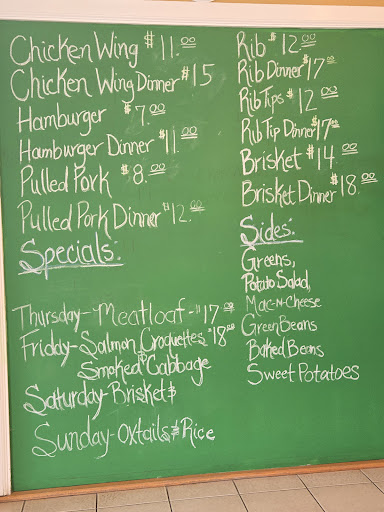 Chicken Wing $11.00
Chicken Wing Dinner $15
Hamburger $7.00
Hamburger Dinner $11.00
Pulled Pork $8.00
Pulled Pork Dinner $12.00
Specials:
Thursday-Meatloaf-$17.00
Friday-Salmon Croquettes $18.00
Smoked Cabbage
Saturday-Brisket$
Sunday-Oxtails & Rice
Rib $12.00
Rib Dinner $17.00
Rib Tips $12.00
Rib Tip Dinner $17.00
Brisket $14.00
Brisket Dinner $18.00
Sides:
Greens,
Potato Salad,
Mac-N-Cheese
Green Beans
Baked Beans
Sweet Potatoes